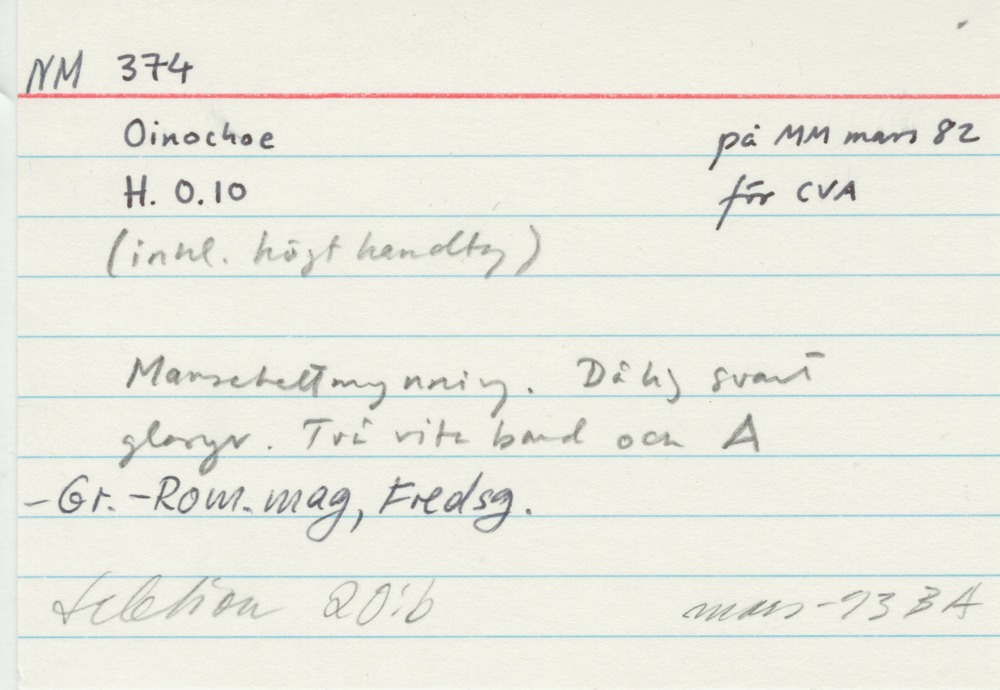 NM 374
Oinochoe på MM mars 82
H. 0.10 för CVA
(inkl. högt handtag)
Manschettmynning. Dålig svart
glasyr. Två vita band och A
-Gr.-Rom.mag, Fredsg.
Sektion 20:b mars-93 BA